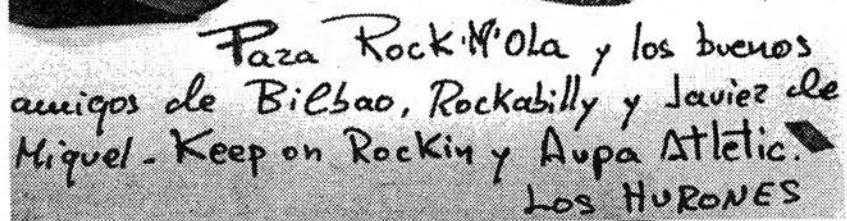 Para Rock'N'Ola y los buenos
amigos de Bilbao, Rockabilly y Javier de
Miguel - Keep on Rockin y Aupa Atletic.
LOS HURONES